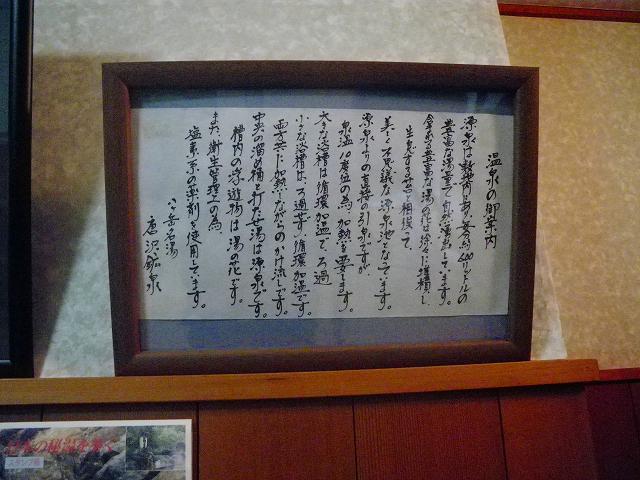 温泉の御案内
源泉は敷地内にあり、毎分約400リットルの
豊富な湯量で自然湧出しています。
含まれる豊富な湯の花は徐々に堆積し、
生息する苔と相俟って
美しく不思議な源泉池となっています。
源泉よりの直接の引泉ですが
泉温10度位の為、加熱を要します。
大きな浴槽は循環加温で、ろ過
小さな浴槽は、ろ過せず、循環加温です。
両方共に加熱しながらのかけ流しです。
中央の溜め桶と打たせ湯は源泉です。
槽内の浮遊物は湯の花です。
また、衛生管理上の為、
塩素系の薬剤を使用しています。
八ヶ岳名湯
唐沢鉱泉
日本の秘湯を守る
スタンプ帳